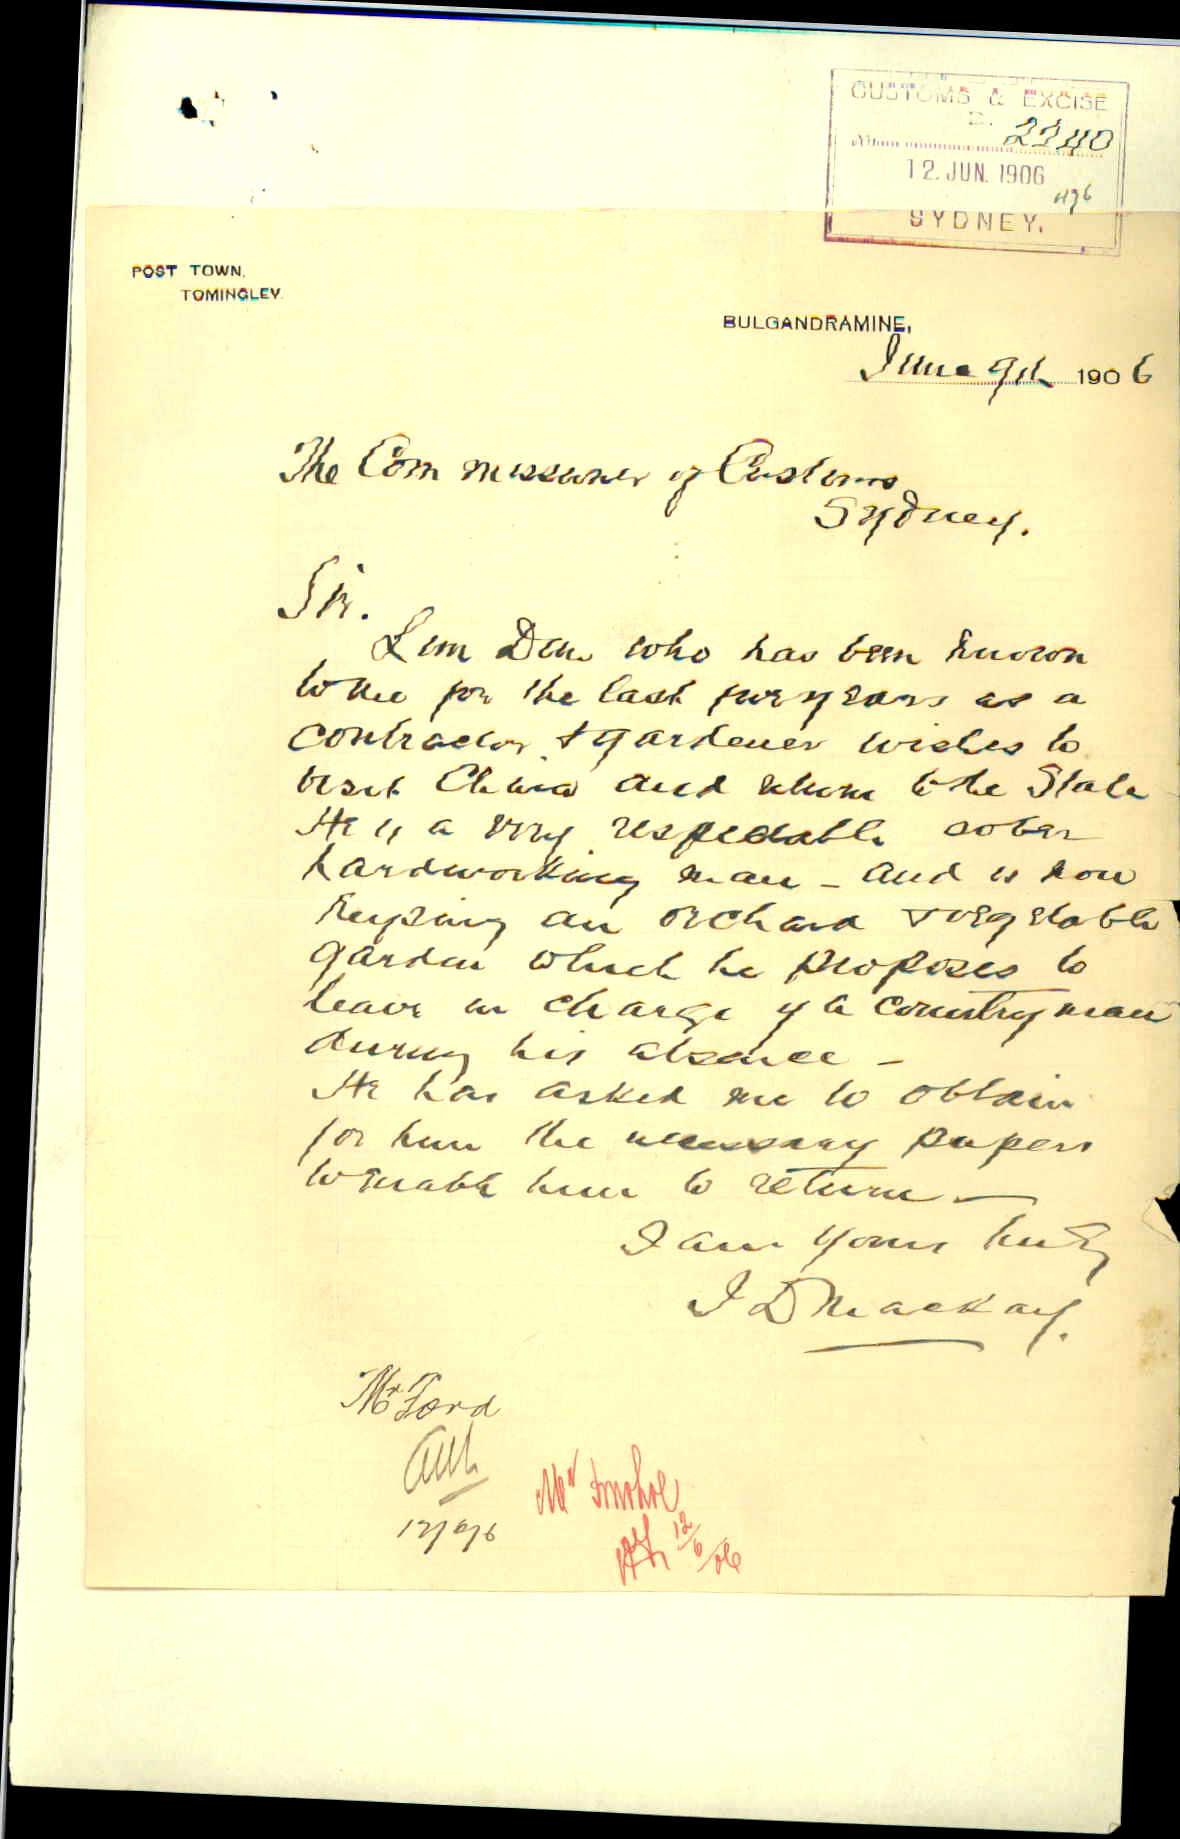 CUSTOMS & EXCISE
2240
12. JUN. 1906
SYDNEY.
POST TOWN,
TOMINGLEY.
BULGANDRAMINE,
June 9th 1906
The Commissioner of Customs
Sydney.
Sir.
Lum Dew who has been known
to me for the last five years as a
contractor & gardener wishes to
visit China and return to the State
He is a very respectable sober
hardworking man – and is now
keeping an orchard & vegetable
garden which he proposes to
leave in charge of a countryman
during his absence –
He has asked me to obtain
for him the necessary papers
to enable him to return —
I am Yours truly
J D Mackay.
Mr Ford
12/6/6
Mr Donohoe
12/6/06